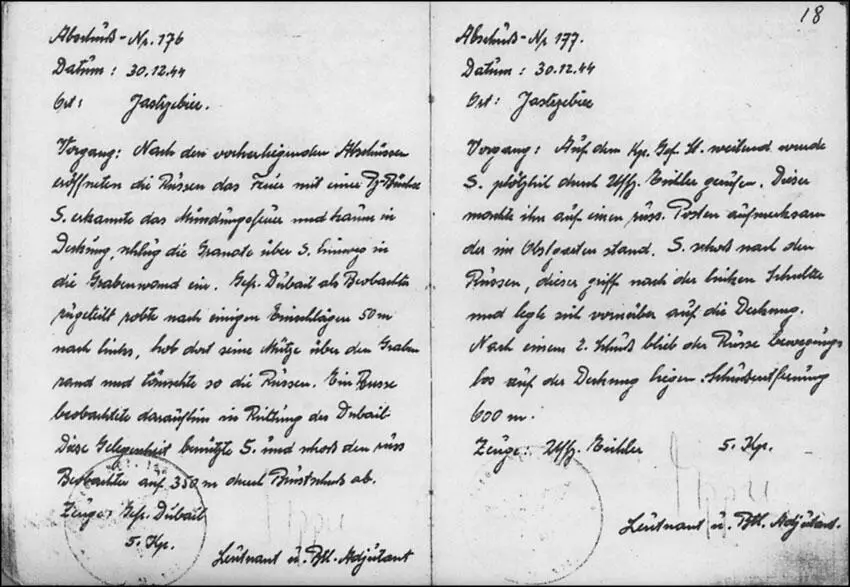 Abschuß-Nr. 176
Datum: 30.12.44
Ort: Jastgebiee.
Vorgang: Nach den vorherliegenden Abschüssen
eröffneten die Russen das Feuer mit einer Pz. Büchse
S. erkannte das Mündungsfeuer und kaum in
Deckung, schlug die Granate über S. hinweg in
die Grabenwand ein. Gefr. Dubail als Beobachter
zugeteilt robte nach einigen Einschlägen 50 m
nach links, hob dort seine Mütze über den Graben
rand und täuschte so die Russen. Ein Russe
beobachtete daraufhin in Richtung des Dubail
Diese Gelegenheit benützte S. und schoß den russ
Beobachter auf 350 m durch Brustschuß ab.
Zeuge: Gefr. Dubail
5. Kp.
Leutnant u. Btl. Adjutant
18
Abschuß-Nr 177.
Datum: 30.12.44
Ort: Jastgebiee
Vorgang: Auf dem Kp. Gef. St. weilend wurde
S. plötzlich durch Uffz. Eichler gerufen. Dieser
machte ihn auf einen russ. Posten aufmerksam
der im Obstgarten stand. S. schoß nach den
Russen, dieser griff nach der linken Schulter
und legte sich vornüber auf die Deckung.
Nach einem 2. Schuß blieb der Russe bewegungs
los auf der Deckung liegen. Schußentfernung
600 m.
Zeuge: Uffz. Eichler 5. Kp.
Leutnant u. Btl. Adjutant.